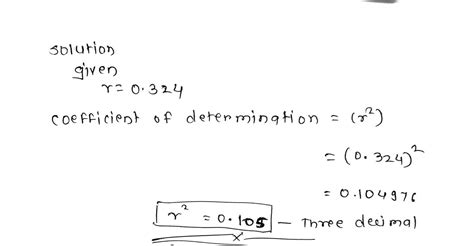 solution
given
r = 0.324
coefficient of determination = (r²)
= (0.324)²
= 0.104976
r² = 0.105 — Three decimal